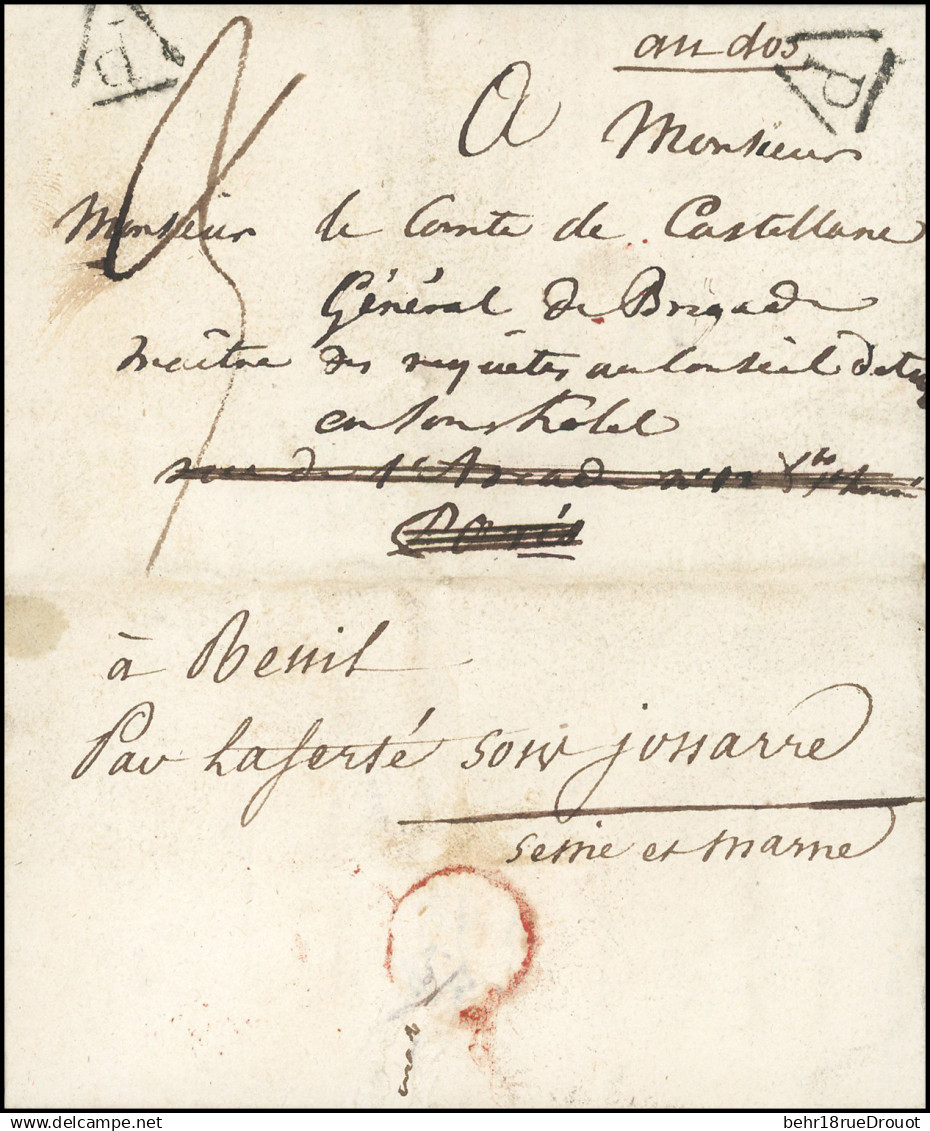 au dos
P
P
A Monsieur
Monsieur le Comte de Castellane
Général de Brigade
maître des requêtes au Conseil d'état
en son hotel
rue de l'Arcade n° 12 fg St honoré
Paris
à Reuil
Par Laferté sous jouarre
seine et marne
delcampe.net
behr18rueDrouot